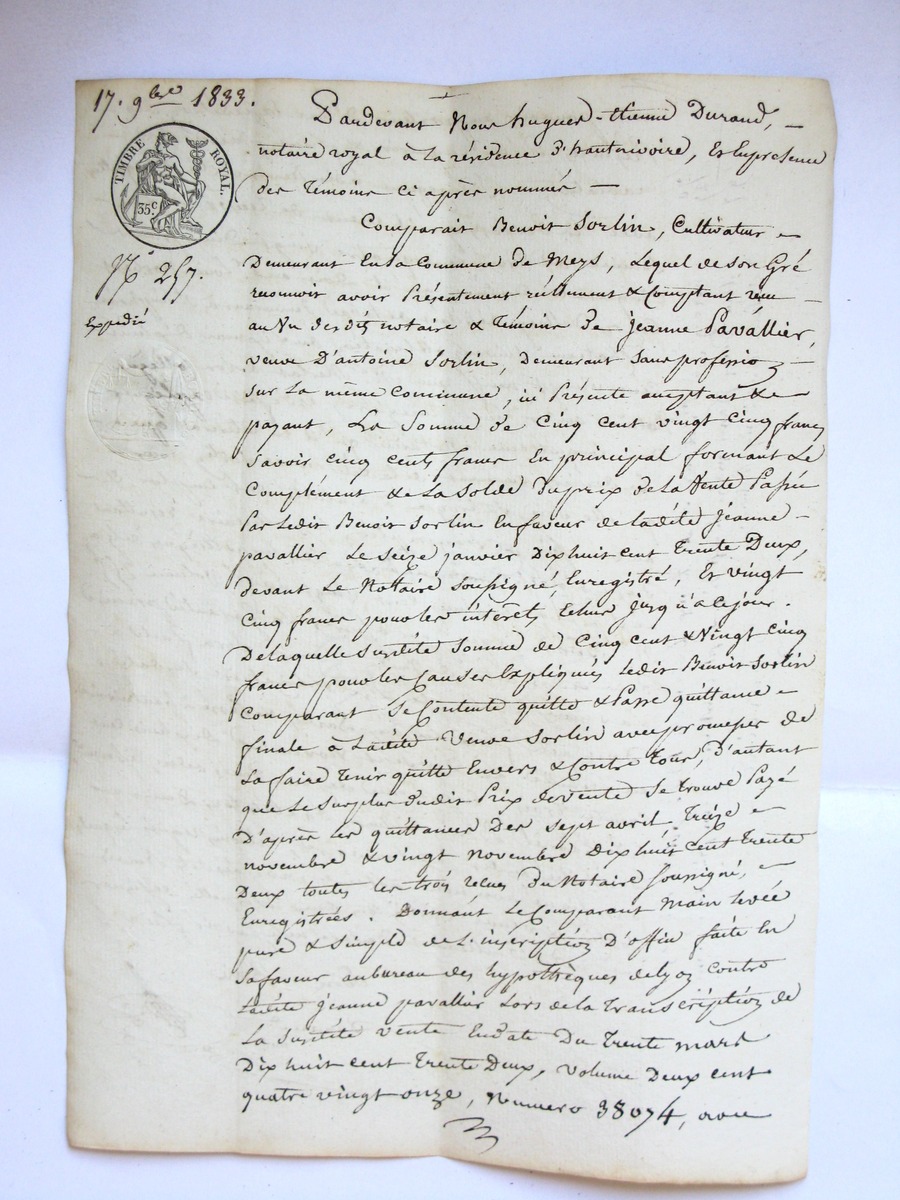 17. 9bre 1833.
TIMBRE ROYAL.
35 c
N° 257.
Expédié
Pardevant Nous hugues-étienne Durand,
notaire royal à la résidence d'hauterivoire, Et En présence
des Témoins ci après nommés —
Comparait Benoit Sorlin, Cultivateur
Demeurant En la Commune de Meys, Lequel de son Gré
reconnoit avoir Présentement réellement & Comptant reçu
au Vu des dits notaire & Témoins de Jeanne Pavallier,
veuve D'antoine Sorlin, Demeurant sans profession
sur la même Commune, ici Présente acceptant &
payant, La Somme de Cinq cent vingt Cinq francs
Savoir cinq cents francs En principal formant Le
Complément & La Solde du prix de la Vente Passée
Par Ledit Benoit Sorlin En faveur de ladite Jeanne
pavallier Le Seize janvier Dix huit cent Trente Deux,
devant Le Notaire soussigné, Enregistré, Et vingt
Cinq francs pour les intérêts Echus jusqu'à ce jour.
De laquelle Susdite Somme de Cinq cent & Vingt Cinq
francs pour les Causes Expliquées Ledit Benoit Sorlin
Comparant Se Contente quitte & Passe quittance
finale à Ladite Veuve Sorlin avec promesse de
La faire Tenir quitte Envers & Contre Tous, D'autant
que Le Surplus dudit Prix de vente Se trouve Payé
D'après Les quittances Des Sept avril Treize
novembre & vingt Novembre Dix huit Cent Trente
Deux toutes les trois reçues Du Notaire soussigné,
Enregistrées. Donnant Le Comparant Main Levée
pure & Simple de L'inscription D'office faite En
Sa faveur au bureau des hypothèques de Lyon Contre
Ladite Jeanne pavallier Lors de la Transcription de
La Susdite vente En date Du Trente mars
Dix huit cent Trente Deux, volume Deux cent
quatre vingt onze, Numero 38074, avec